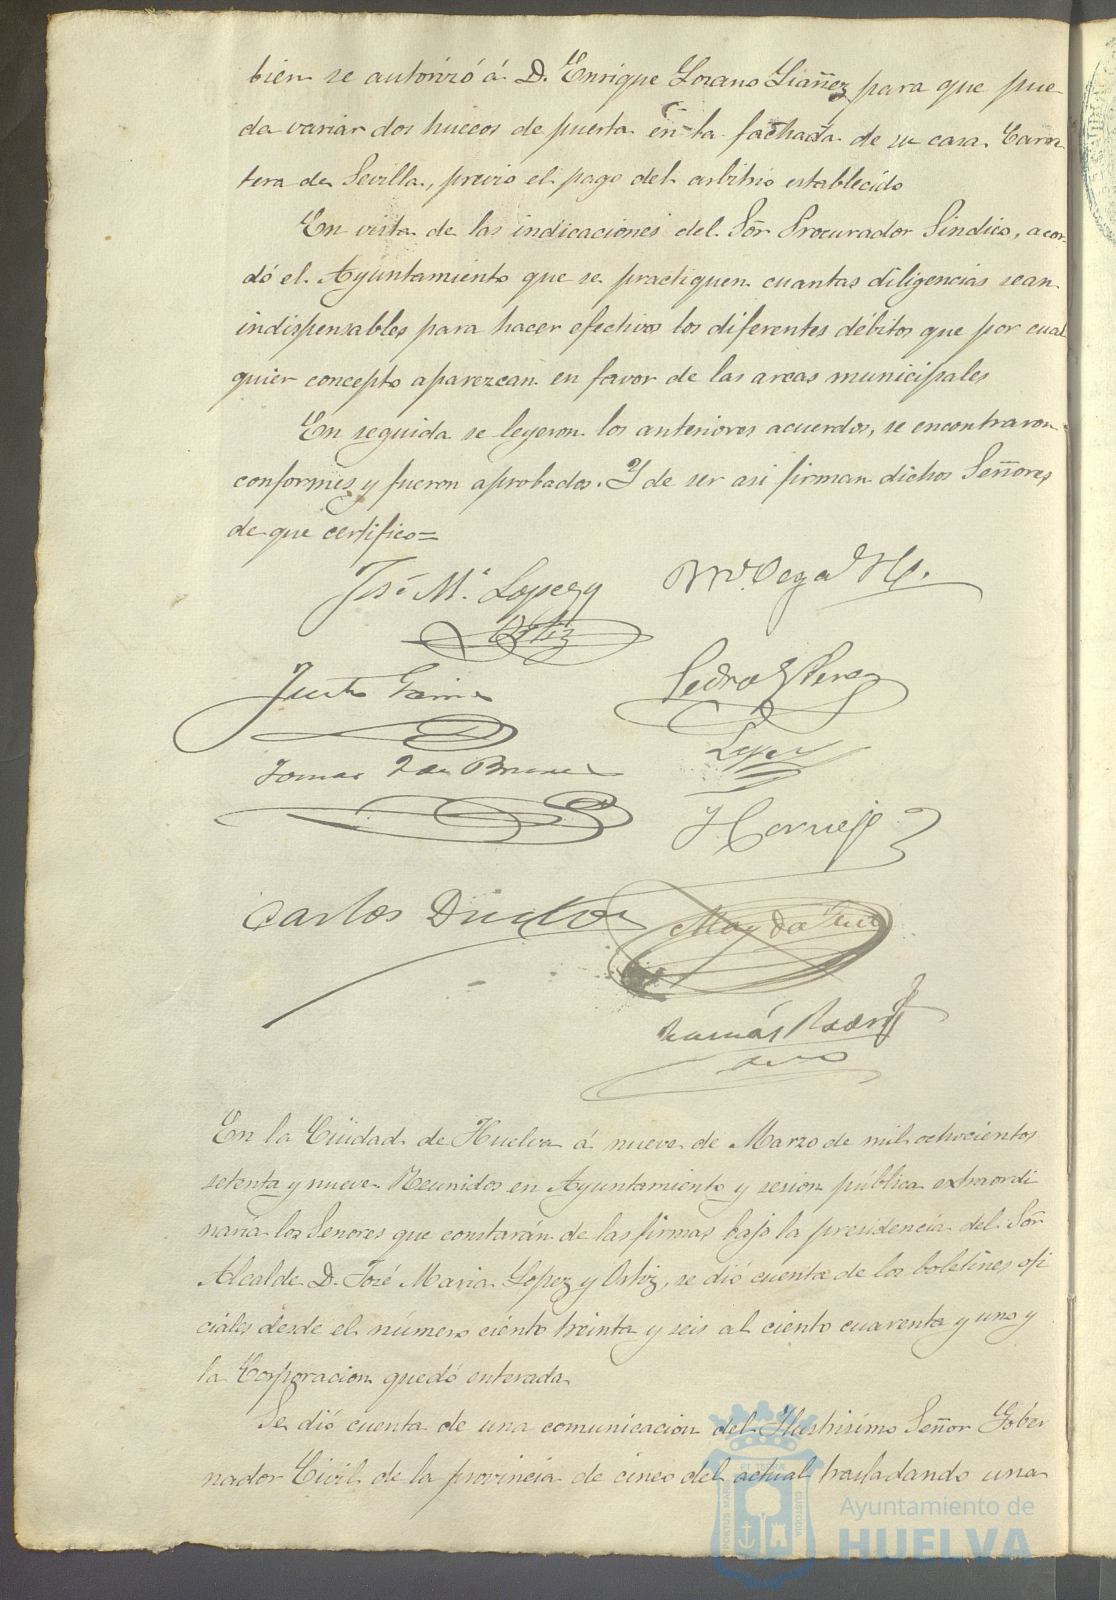 bien se autorizó á D. Enrique Lozano Liañez para que pue-
da variar dos huecos de puerta en la fachada de su casa Carre-
tera de Sevilla, previo el pago del arbitrio establecido
En vista de las indicaciones del Sōr Procurador Sindico, acor-
dó el Ayuntamiento que se practiquen cuantas diligencias sean
indispensables para hacer efectivos los diferentes débitos que por cual
quier concepto aparezcan en favor de las arcas municipales
En seguida se leyeron los anteriores acuerdos, se encontraron
conformes y fueron aprobados. Y de ser asi firman dichos Señores
de que certifico=
José M.ª Lopez y
Ortiz
Justo
Pedro Perez
Lopez
Tomas
Carlos
Tomás
En la Ciudad de Huelva á nueve de Marzo de mil ochocientos
setenta y nueve Reunidos en Ayuntamiento y sesion pública extraordi
naria los Señores que constarán de las firmas bajo la presidencia del Sōr
Alcalde D. José Maria Lopez y Ortiz, se dió cuenta de los boletines ofi
ciales desde el número ciento treinta y seis al ciento cuarenta y uno y
la Corporacion quedó enterada
Se dió cuenta de una comunicacion del Ilustrisimo Señor Gober
nador Civil de la provincia de cinco del actual trasladando una
Ayuntamiento de
HUELVA